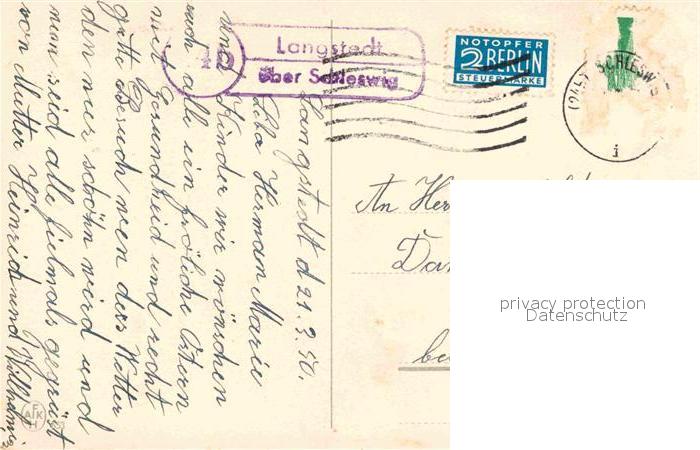 Langstedt
über Schleswig
NOTOPFER
2 BERLIN
STEUERMARKE
SCHLESWIG
Langstedt d 21. 3. 50.
Liba Herman Marie
und Kinder wir wönschen
euch alle ein fröliche Ostern
mit Gesundheid und recht
gute Besuch wen ders Wetter
den nur schöhn wird und
nun seid alle fielmals gegrüst
von Mutter Heinrich und
An Her
privacy protection
Datenschutz